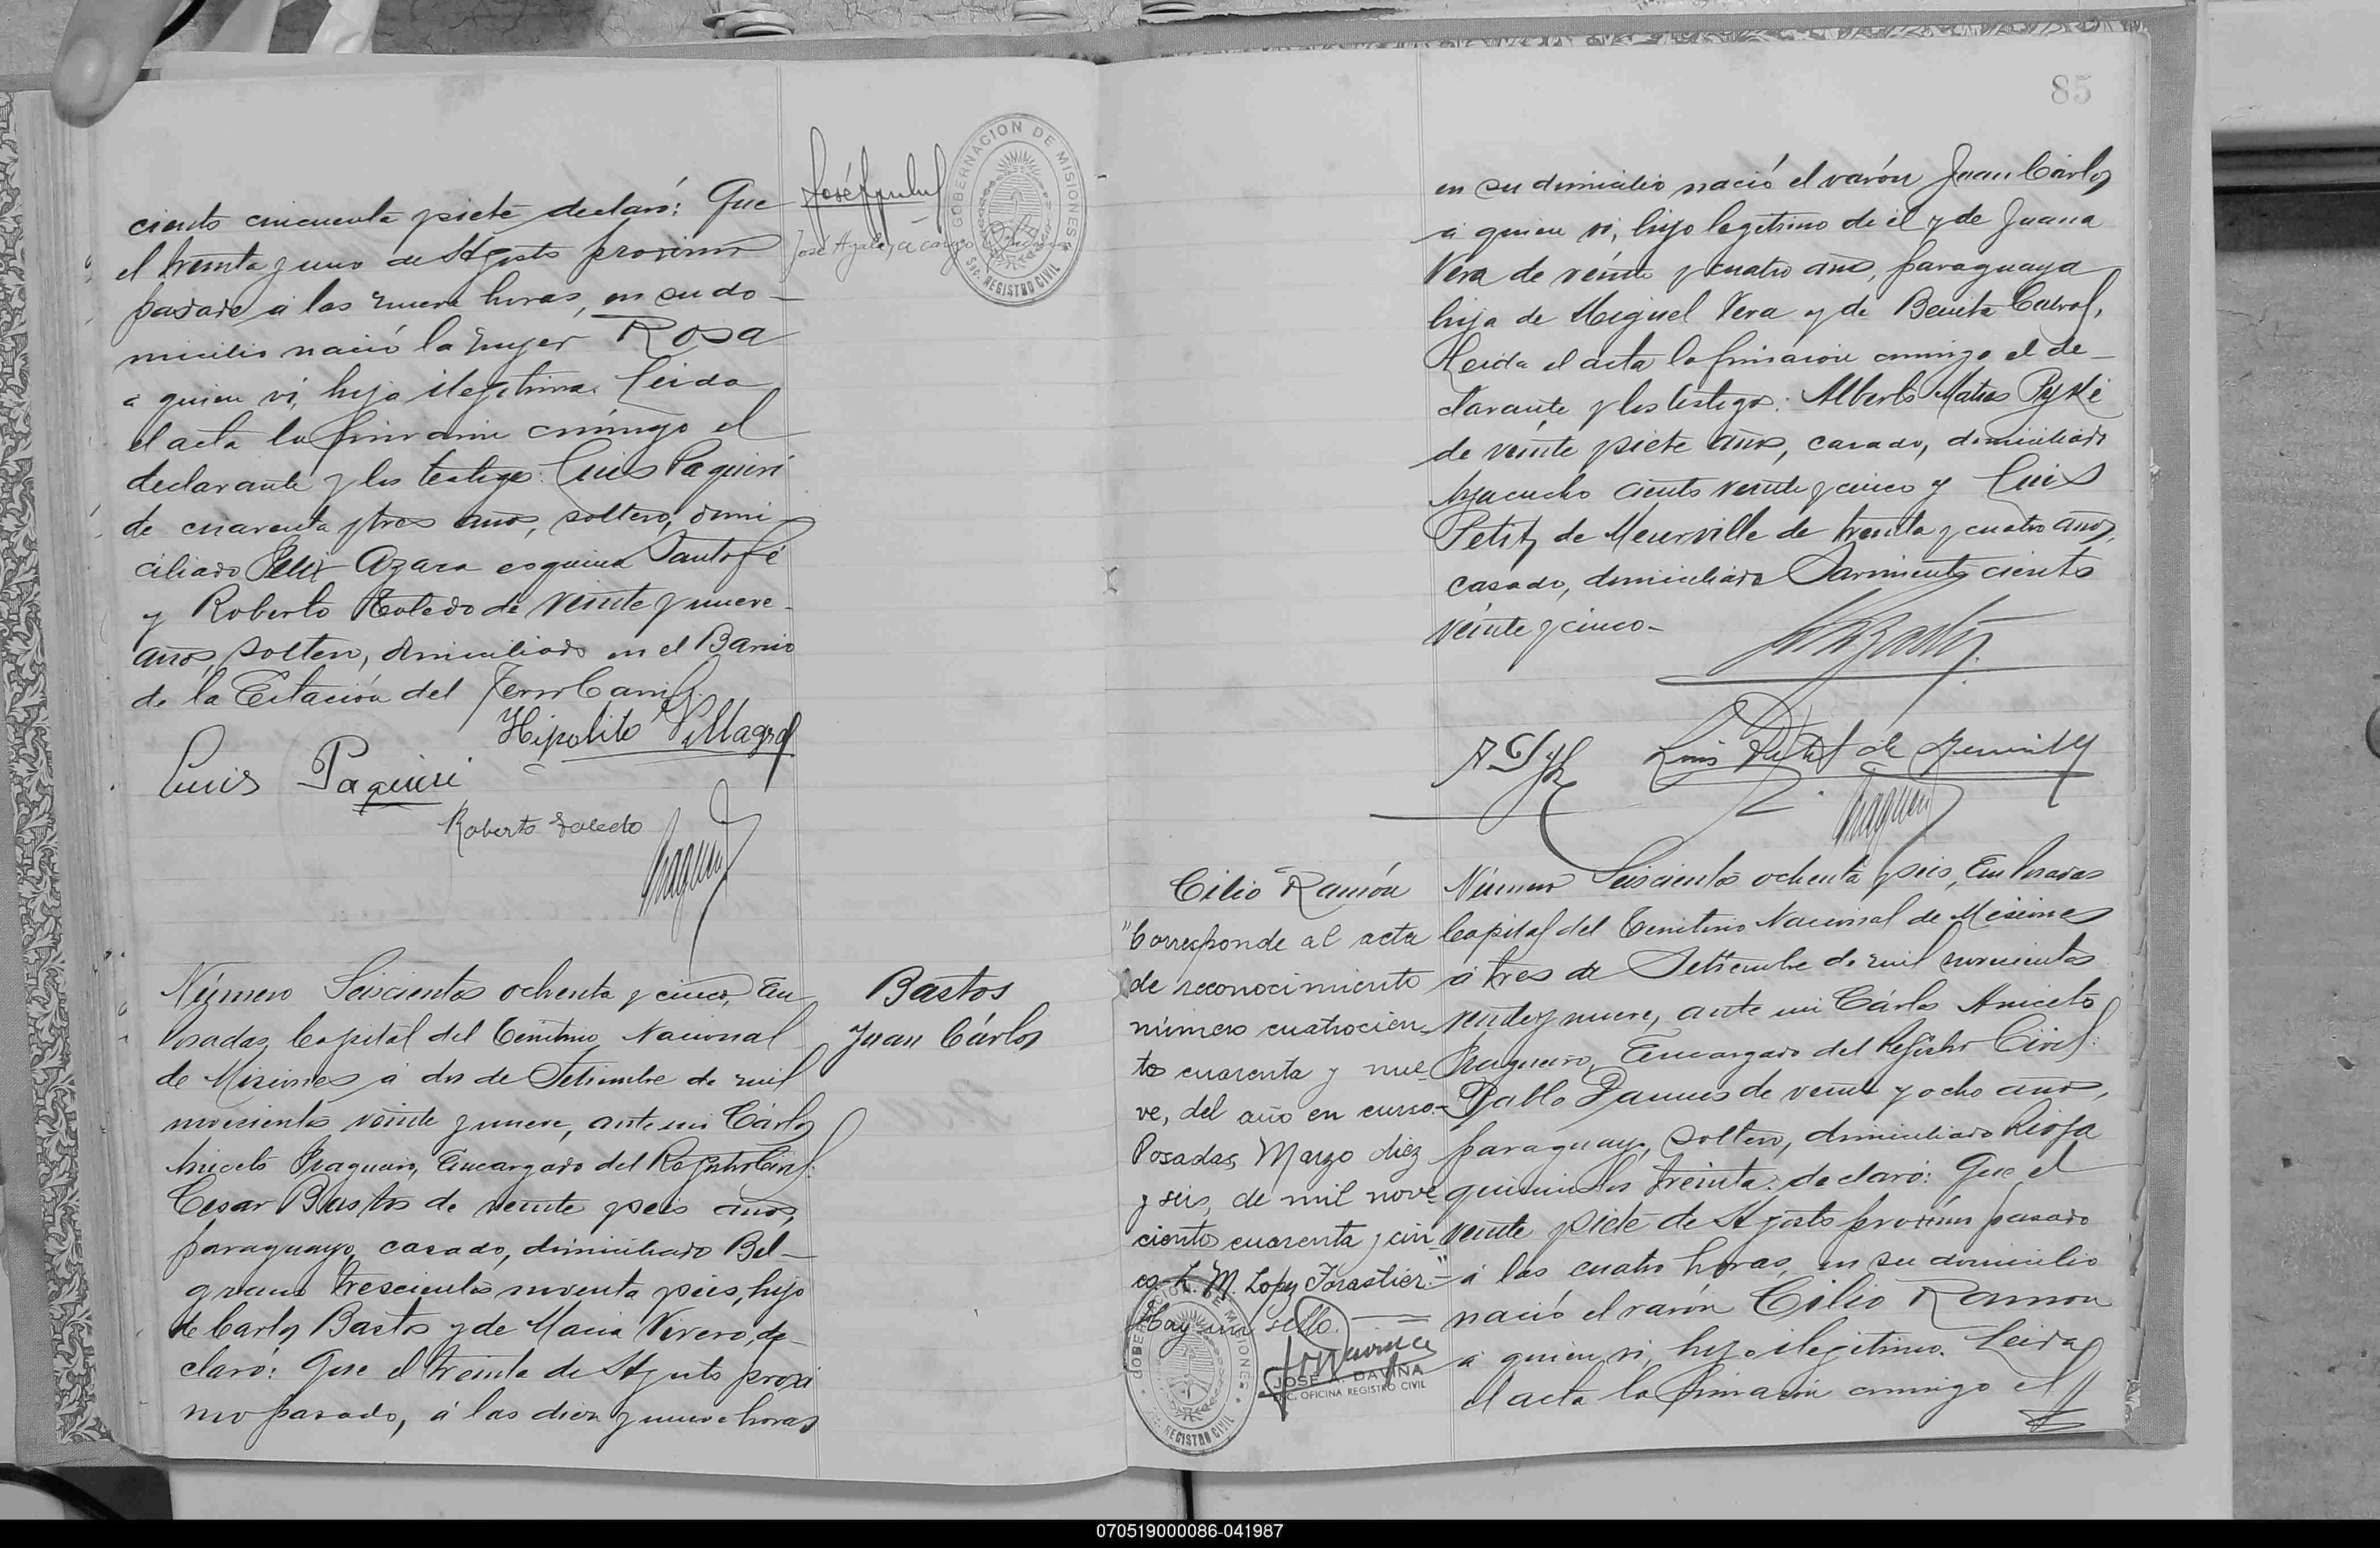 ciento cincuenta y siete declaró: Que
el treinta y uno de Agosto proximo
pasado á las nueve horas, en su do-
micilio nació la mujer Rosa
á quien vi, hija ilegitima. Leida
el acta la firmaron conmigo el
declarante y los testigos: Luis Paquiri
de cuarenta y tres años, soltero, domi
ciliado Felix Azara esquina Santa fé
y Roberto Toledo de veinte y nueve
años, soltero, domiciliado en el Barrio
de la Estación del Ferro Carril.
Hipolito Villagra
Luis Paquiri
Roberto Toledo
José
José A. a cargo
GOBERNACION DE MISIONES
Sec. REGISTRO CIVIL
Número Seiscientos ochenta y cinco, En
Posadas, Capital del Territorio Nacional
de Misiones á dos de Setiembre de mil
novecientos veinte y nueve, ante mi Cárlos
Aniceto Fragueiro, Encargado del Registro Civil:
Cesar Bastos de veinte y seis años,
paraguayo, casado, domiciliado Bel-
grano trescientos noventa y seis, hijo
de Carlos Bastos y de Maria Vivero, de
claró: Que el treinta de Agosto proxi
mo pasado, á las diez y nueve horas
Bastos
Juan Cárlos
85
en su domicilio nació el varón Juan Cárlos
á quien vi, hijo legitimo de él y de Juana
Vera de veinte y cuatro años, paraguaya
hija de Miguel Vera y de Benita Cabral,
Leida el acta la firmaron conmigo el de-
clarante y los testigos: Alberto Matias
de veinte y siete años, casado, domiciliado
Ayacucho ciento veinte y cinco y Luis
Petit de Meurville de treinta y cuatro años,
casado, domiciliado Sarmiento ciento
veinte y cinco-
Luis Petit de Meurville
Cilio Ramón
"Corresponde al acta
de reconocimiento
número cuatrocien-
tos cuarenta y nue-
ve, del año en curso.-
Posadas, Marzo diez
y seis, de mil nove-
cientos cuarenta y cin-
co. L. M. Lopez Forastier."-
Hay un sello.
JOSÉ A. DAVIÑA
ENC. OFICINA REGISTRO CIVIL
GOBERNACION DE MISIONES
Sec. REGISTRO CIVIL
Número Seiscientos ochenta y seis, En Posadas
Capital del Territorio Nacional de Misiones
á tres de Setiembre de mil novecientos
veinte y nueve, ante mi Cárlos Aniceto
Fragueiro, Encargado del Registro Civil:
Pablo de veinte y ocho años,
paraguayo, soltero, domiciliado Rioja
quinientos treinta: declaró: Que el
veinte y siete de Agosto proximo pasado
á las cuatro horas, en su domicilio
nació el varón Cilio Ramon
á quien vi, hijo ilegitimo. Leida
el acta la firmaron conmigo el
070519000086-041987